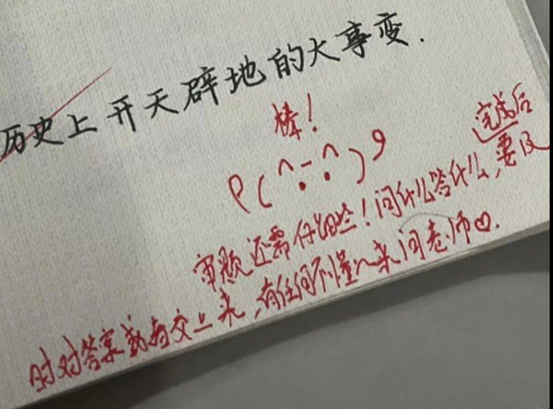 历史上开天辟地的大事变.
棒!
审题还需仔细些!问什么答什么,完成后要及
时对答案或者交上来,有任何不懂~来问老师♡.